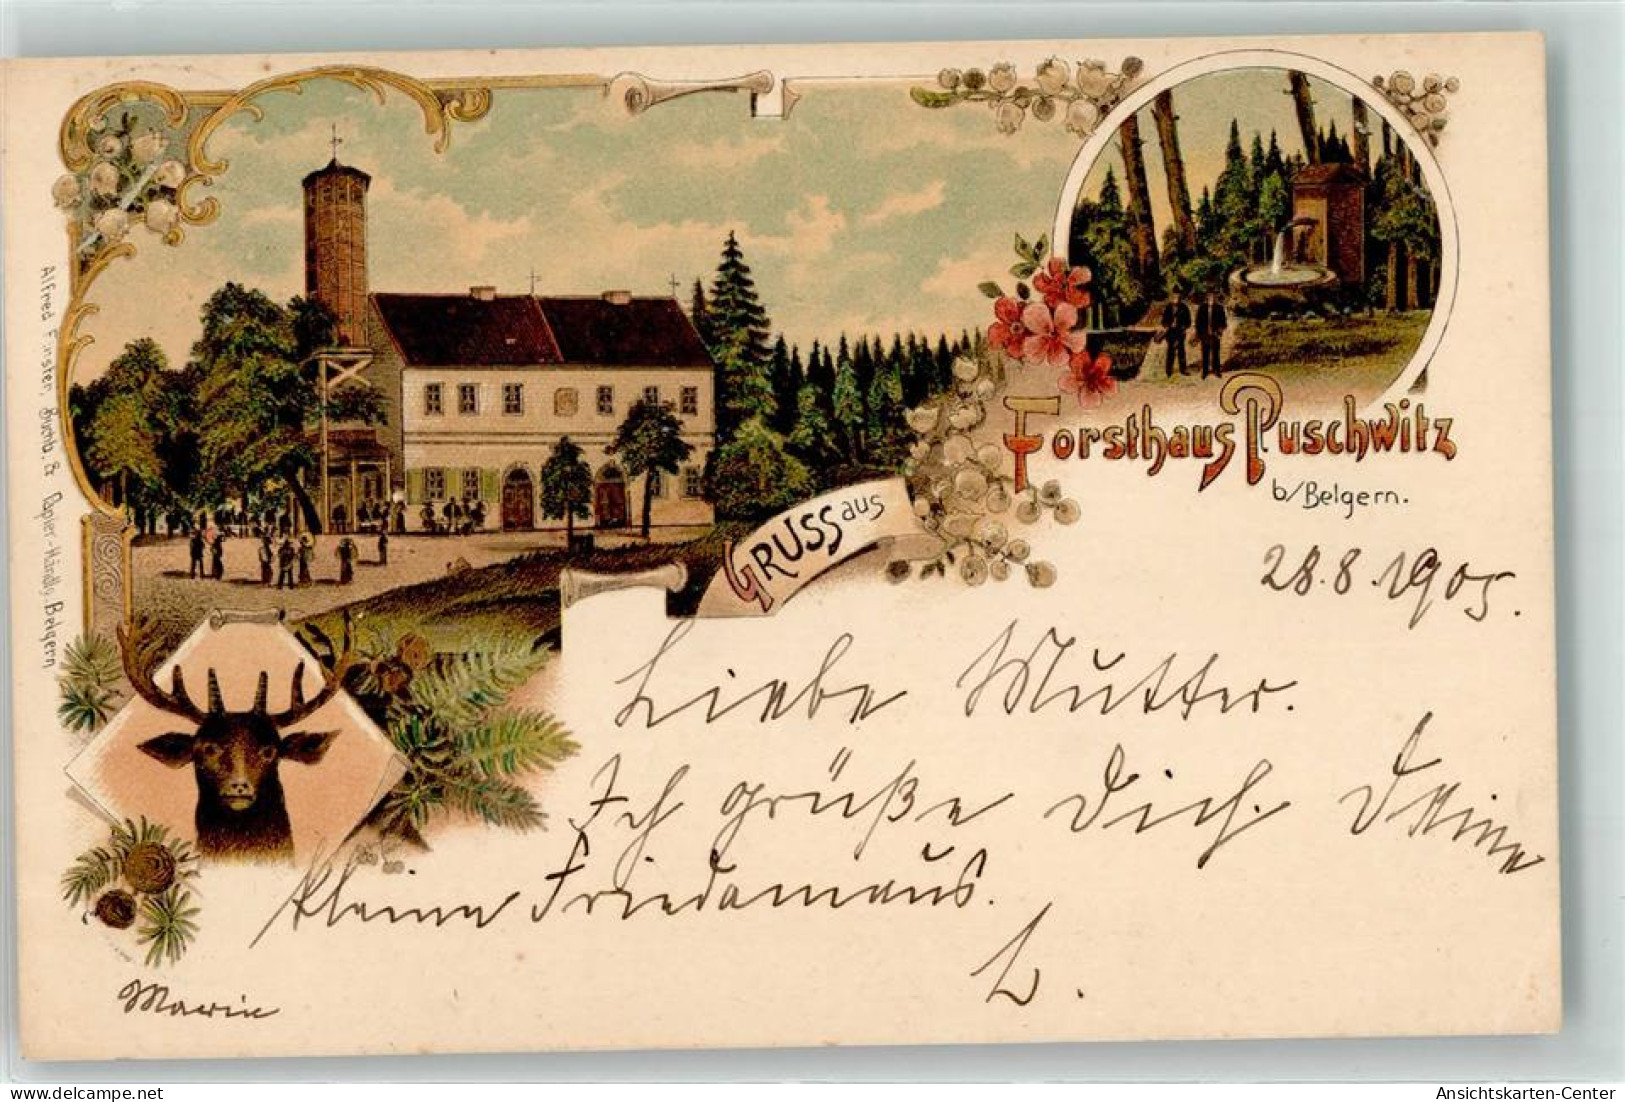 Alfred Förster, Buchb. & Papier-Handlg. Belgern
GRUSS aus
Forsthaus Puschwitz
b/Belgern.
28.8.1905.
Liebe Mutter.
Ich grüße Dich. Deine
kleine Friedamaus.
L.
Marie
Ansichtskarten-Center